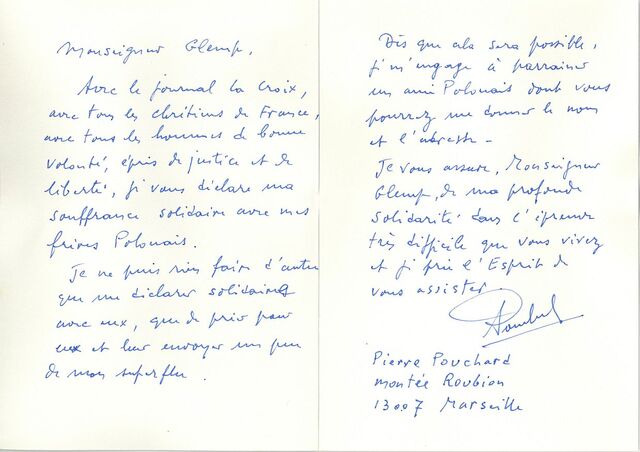 Monseigneur Glemp,
Avec le journal la Croix,
avec tous les chrétiens de France,
avec tous les hommes de bonne
volonté, épris de justice et de
liberté, je vous déclare ma
souffrance solidaire avec mes
frères Polonais.
Je ne puis rien faire d'autre
que me déclarer solidaire
avec eux, que de prier pour
eux et leur envoyer un peu
de mon superflu.
Dès que cela sera possible,
je m'engage à parrainer
un ami Polonais dont vous
pourrez me donner le nom
et l'adresse -
Je vous assure, Monseigneur
Glemp, de ma profonde
solidarité dans l'épreuve
très difficile que vous vivez
et je prie l'Esprit de
vous assister.
Pierre Pouchard
montée Roubion
13007 Marseille